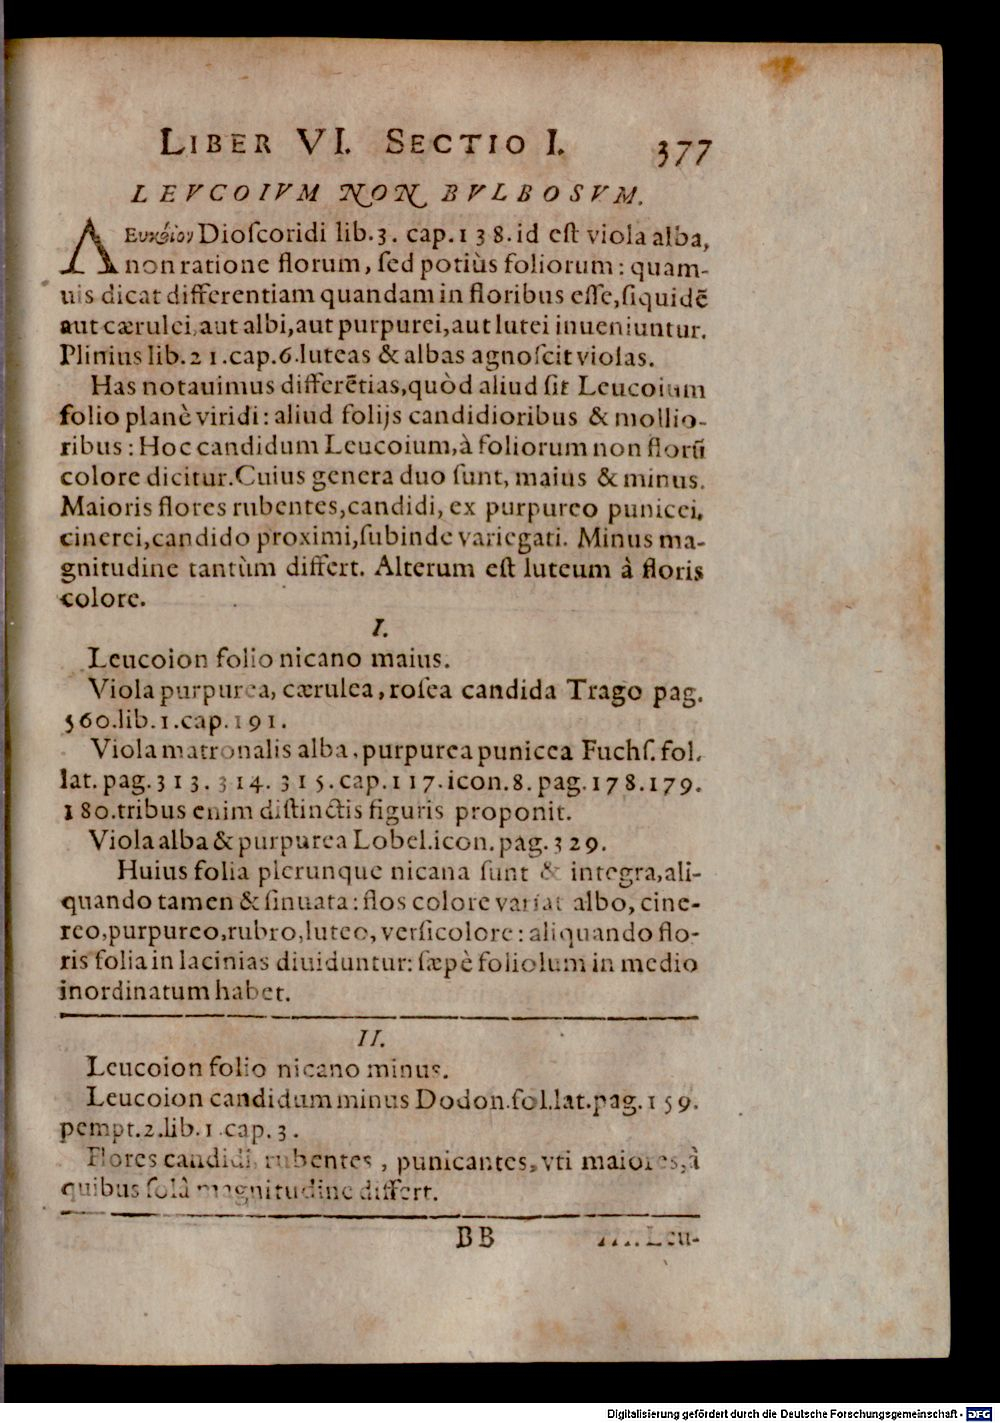 LIBER VI. SECTIO I. 377
LEVCOIVM NON BVLBOSVM.
ΛΕυκόϊον Dioſcoridi lib.3. cap.138.id eſt viola alba,
non ratione florum, ſed potiùs foliorum: quam-
uis dicat differentiam quandam in floribus eſſe, ſiquidē
aut cærulei, aut albi, aut purpurei, aut lutei inueniuntur.
Plinius lib.21.cap.6.luteas & albas agnoſcit violas.
Has notauimus differētias, quòd aliud ſit Leucoium
folio planè viridi: aliud folijs candidioribus & mollio-
ribus: Hoc candidum Leucoium, à foliorum non florū
colore dicitur. Cuius genera duo ſunt, maius & minus.
Maioris flores rubentes, candidi, ex purpureo punicei,
cinerei, candido proximi, ſubinde variegati. Minus ma-
gnitudine tantùm differt. Alterum eſt luteum à floris
colore.
I.
Leucoion folio nicano maius.
Viola purpurea, cærulea, roſea candida Trago pag.
560.lib.1.cap.191.
Viola matronalis alba, purpurea punicea Fuchſ. fol.
lat. pag.313. 314. 315.cap.117.icon.8. pag.178.179.
180.tribus enim diſtinctis figuris proponit.
Viola alba & purpurea Lobel.icon.pag.329.
Huius folia plerunque nicana ſunt & integra, ali-
quando tamen & ſinuata: flos colore variat albo, cine-
reo, purpureo, rubro, luteo, verſicolore: aliquando flo-
ris folia in lacinias diuiduntur: ſæpè foliolum in medio
inordinatum habet.
II.
Leucoion folio nicano minus.
Leucoion candidum minus Dodon.fol.lat.pag.159.
pempt.2.lib.1.cap.3.
Flores candidi, rubentes, punicantes, vti maiores, à
quibus ſolâ magnitudine differt.
BB III. Leu-
Digitalisierung gefördert durch die Deutsche Forschungsgemeinschaft - DFG